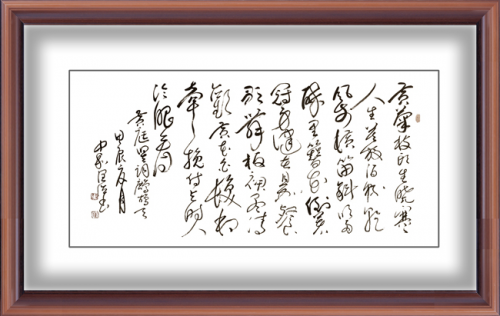 黄菊枝头生晓寒
人生莫放酒杯干
风前横笛斜吹雨
醉里簪花倒著
冠身健在且加餐
歌板尽清
欢黄花白发相
牵挽付与时人
冷眼看
黄庭坚词鹧鸪天
甲辰夏月
书